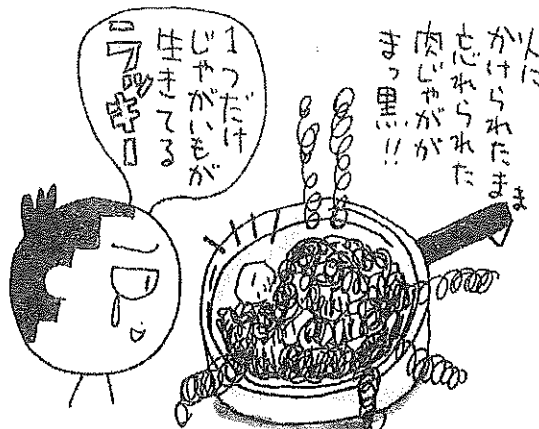 火に
かけられたまま
忘れられた
肉じゃがが
まっ黒!!
1つだけ
じゃがいもが
生きてる
ラッキー